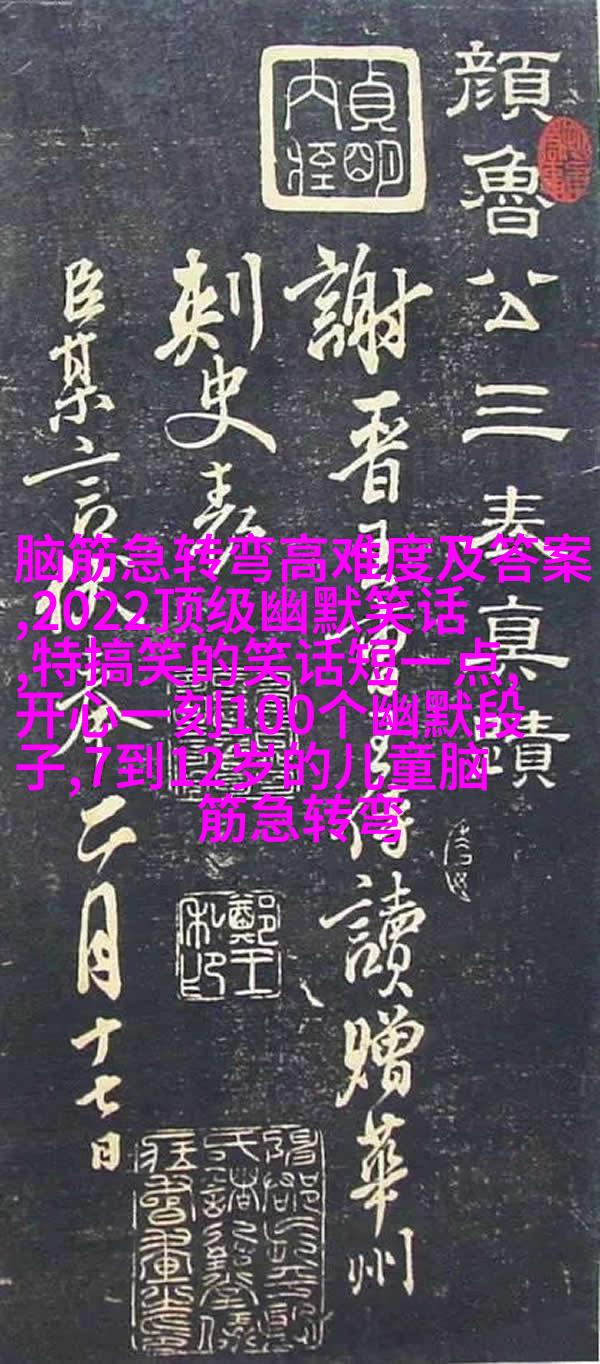 脑筋急转弯高难度及答案
,2022顶级幽默笑话
,特搞笑的笑话短一点,
开心一刻100个幽默段
子,7到12岁的儿童脑
筋急转弯
顔魯公三表真蹟
謝晉王王侍讀贈華州
刺史表
臣某言伏奉二月十七日